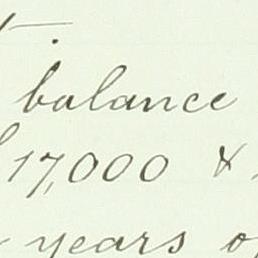 balance
17,000 &
years of